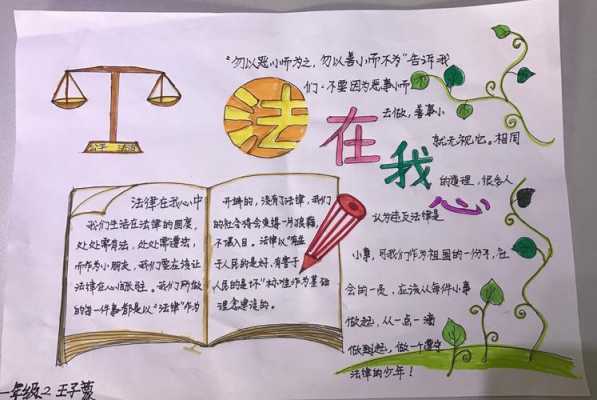 "勿以恶小而为之,勿以善小而不为"告诉我
们,不要因为恶事小而
去做,善事小
就无视它。相同
的道理,很多人
认为违反法律是
小事,可我们作为祖国的一份子,社
会的一员,应该从每件小事
做起,从一点一滴
做到起,做一个遵守
法律的少年!
法在我心
公平 法治
法律在我心中
我们生活在法律的国度,
处处需有法,处处需遵法,
而作为小朋友,我们更应该让
法律在心间永驻。我们所做
的每一件事都是以"法律"作为
开端的,没有了法律,我们
的社会将会变得一片狼藉,
不堪入目。法律以"有益
于人民的是好,有害于
人民的是坏"标准作为基础
理念建设的。
一年级.2 王子萱